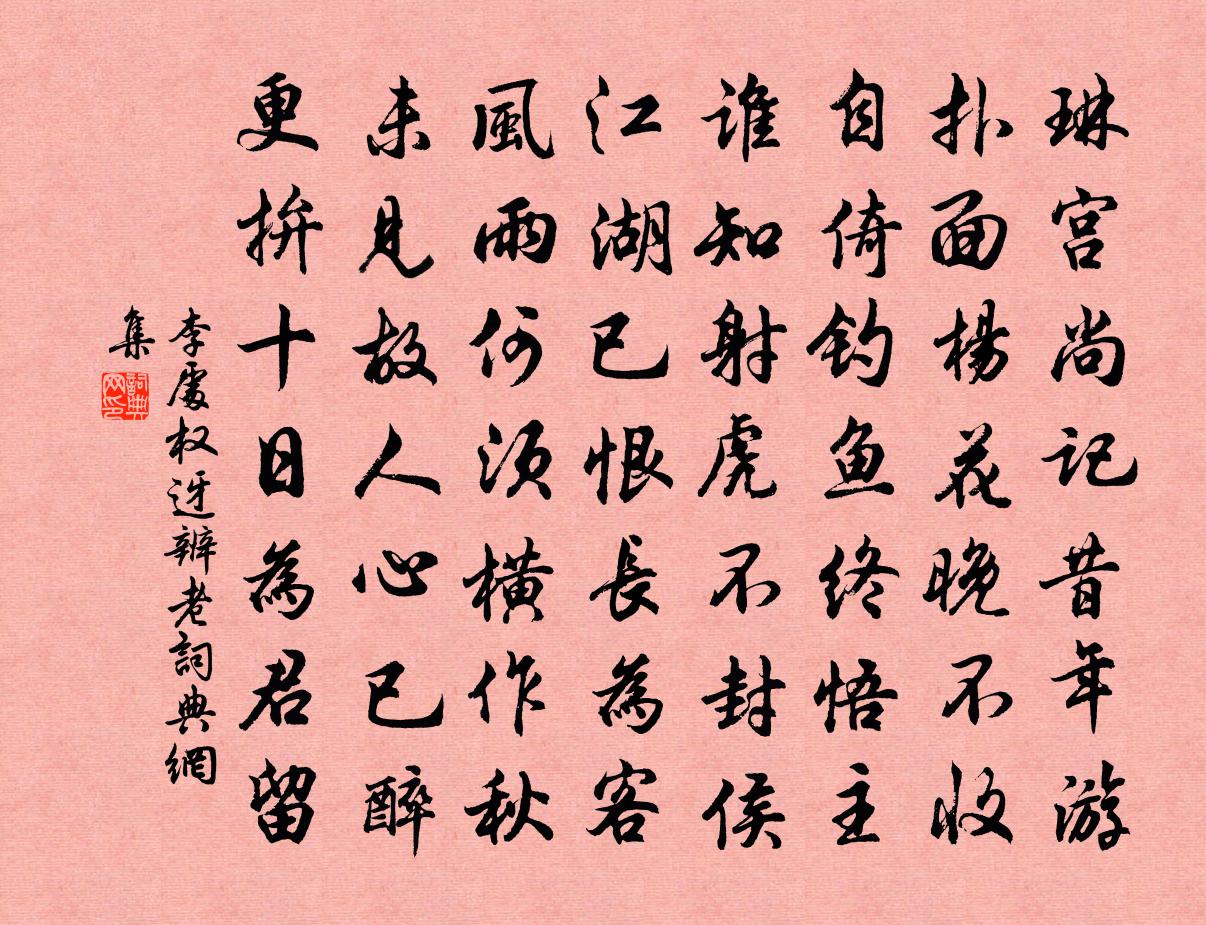 琳宫尚记昔年游
扑面杨花晚不收
自倚钓鱼终悟主
谁知射虎不封侯
江湖已恨長為客
風雨何须橫作秋
未見故人心已醉
更拚十日為君留
李處权迓辨老詞典網
集
詞典
网印